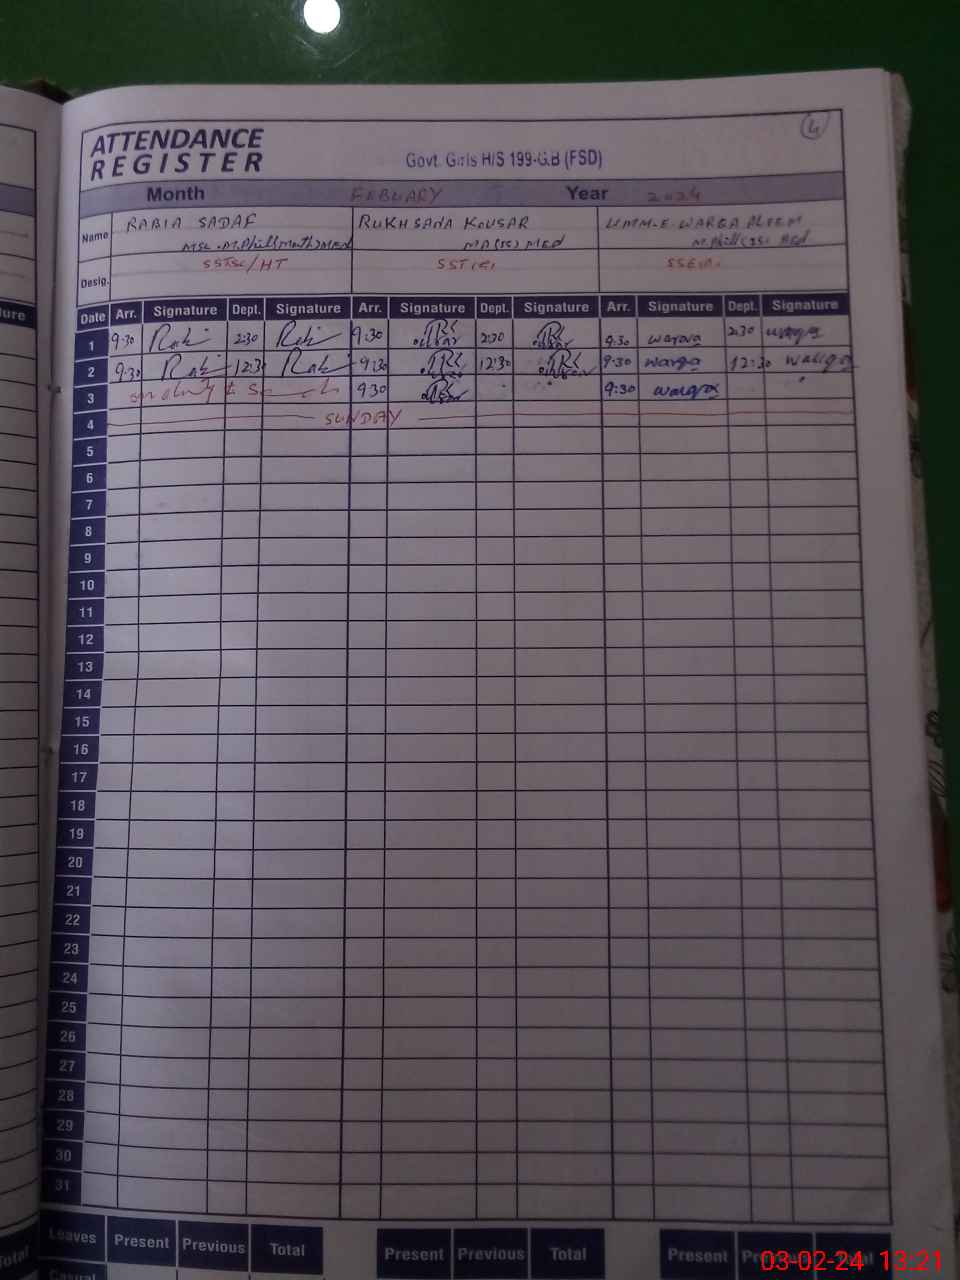 ATTENDANCE
REGISTER
4
Govt. Girls H/S 199-G.B (FSD)
Month FEBUARY Year 2024
Name RABIA SADAF RUKHSANA KOUSAR UMM-E-WARQA ALEEM
MSc. M.Phill (Math) MEd MA (SC) MEd M.Phill
Desig. SSTSc/HT SST SSE
Date Arr. Signature Dept. Signature Arr. Signature Dept. Signature Arr. Signature Dept. Signature
1 9:30 2:30 9:30 2:30 9:30 warqa 2:30 warqa
2 9:30 12:30 9:30 12:30 9:30 warqa 12:30 warqa
3 on duty 9:30 9:30 warqa
4 SUNDAY
5
6
7
8
9
10
11
12
13
14
15
16
17
18
19
20
21
22
23
24
25
26
27
28
29
30
31
Leaves Present Previous Total Present Previous Total Present
Casual
ture
Total
03-02-24 13:21